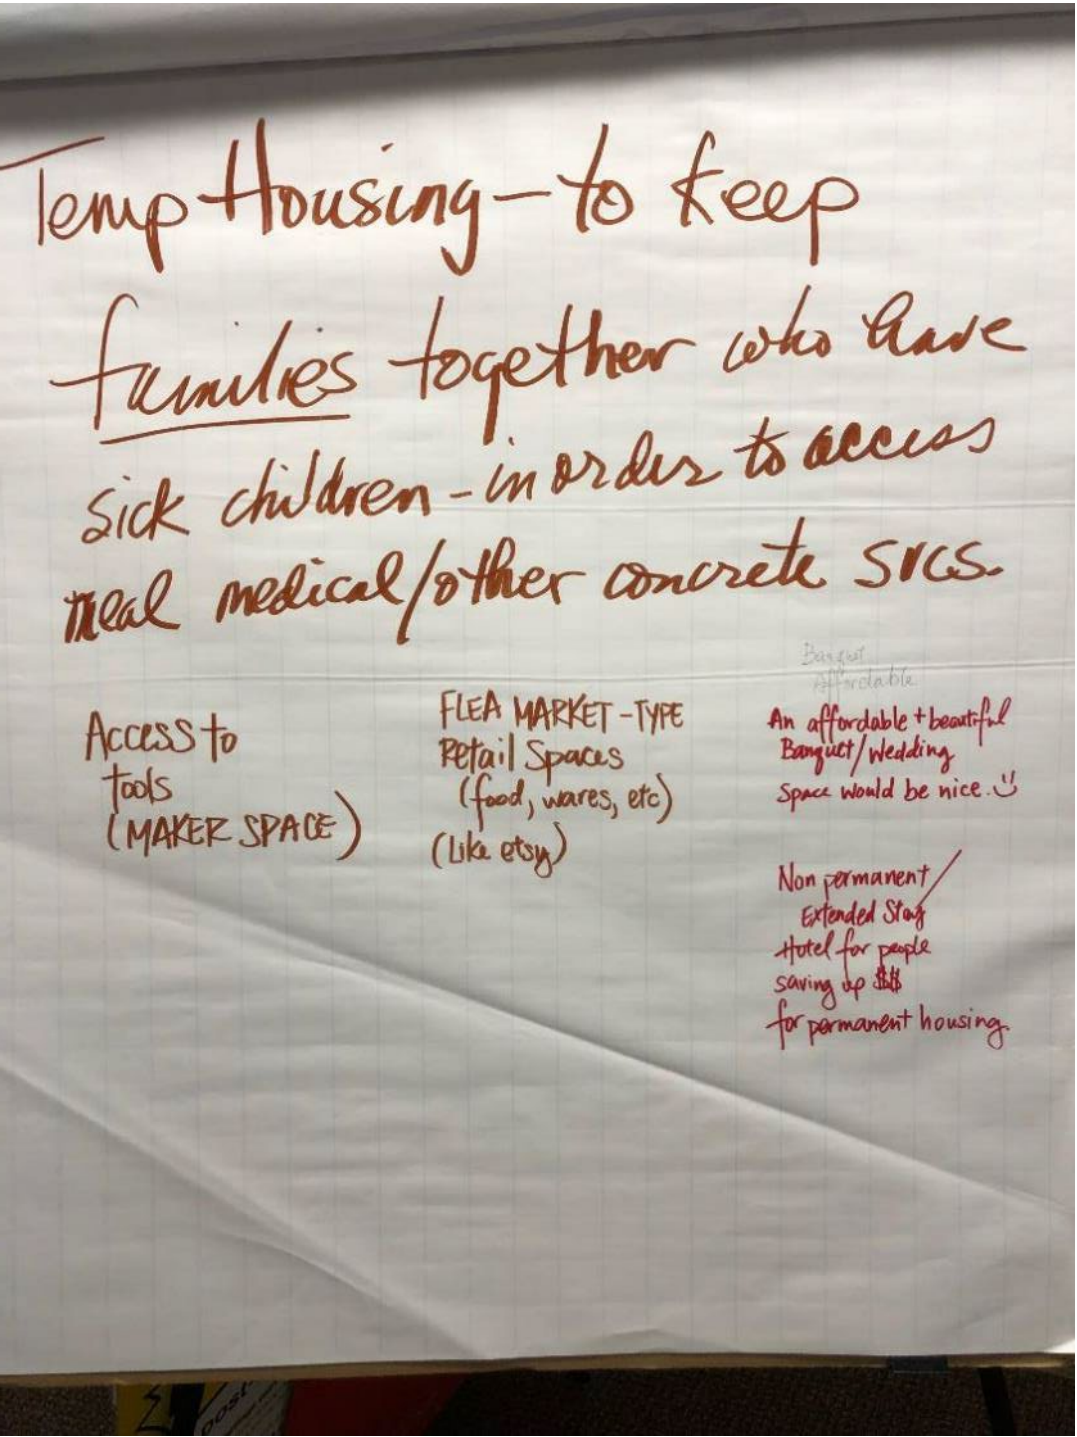 Temp Housing - to keep
families together who have
sick children - in order to access
meal medical/other concrete svcs.
Access to
tools
(MAKER SPACE)
FLEA MARKET - TYPE
Retail Spaces
(food, wares, etc)
(Like etsy)
Banquet
Affordable
An affordable + beautiful
Banquet/Wedding
Space would be nice. :)
Non permanent/
Extended Stay
Hotel for people
saving up $$
for permanent housing.